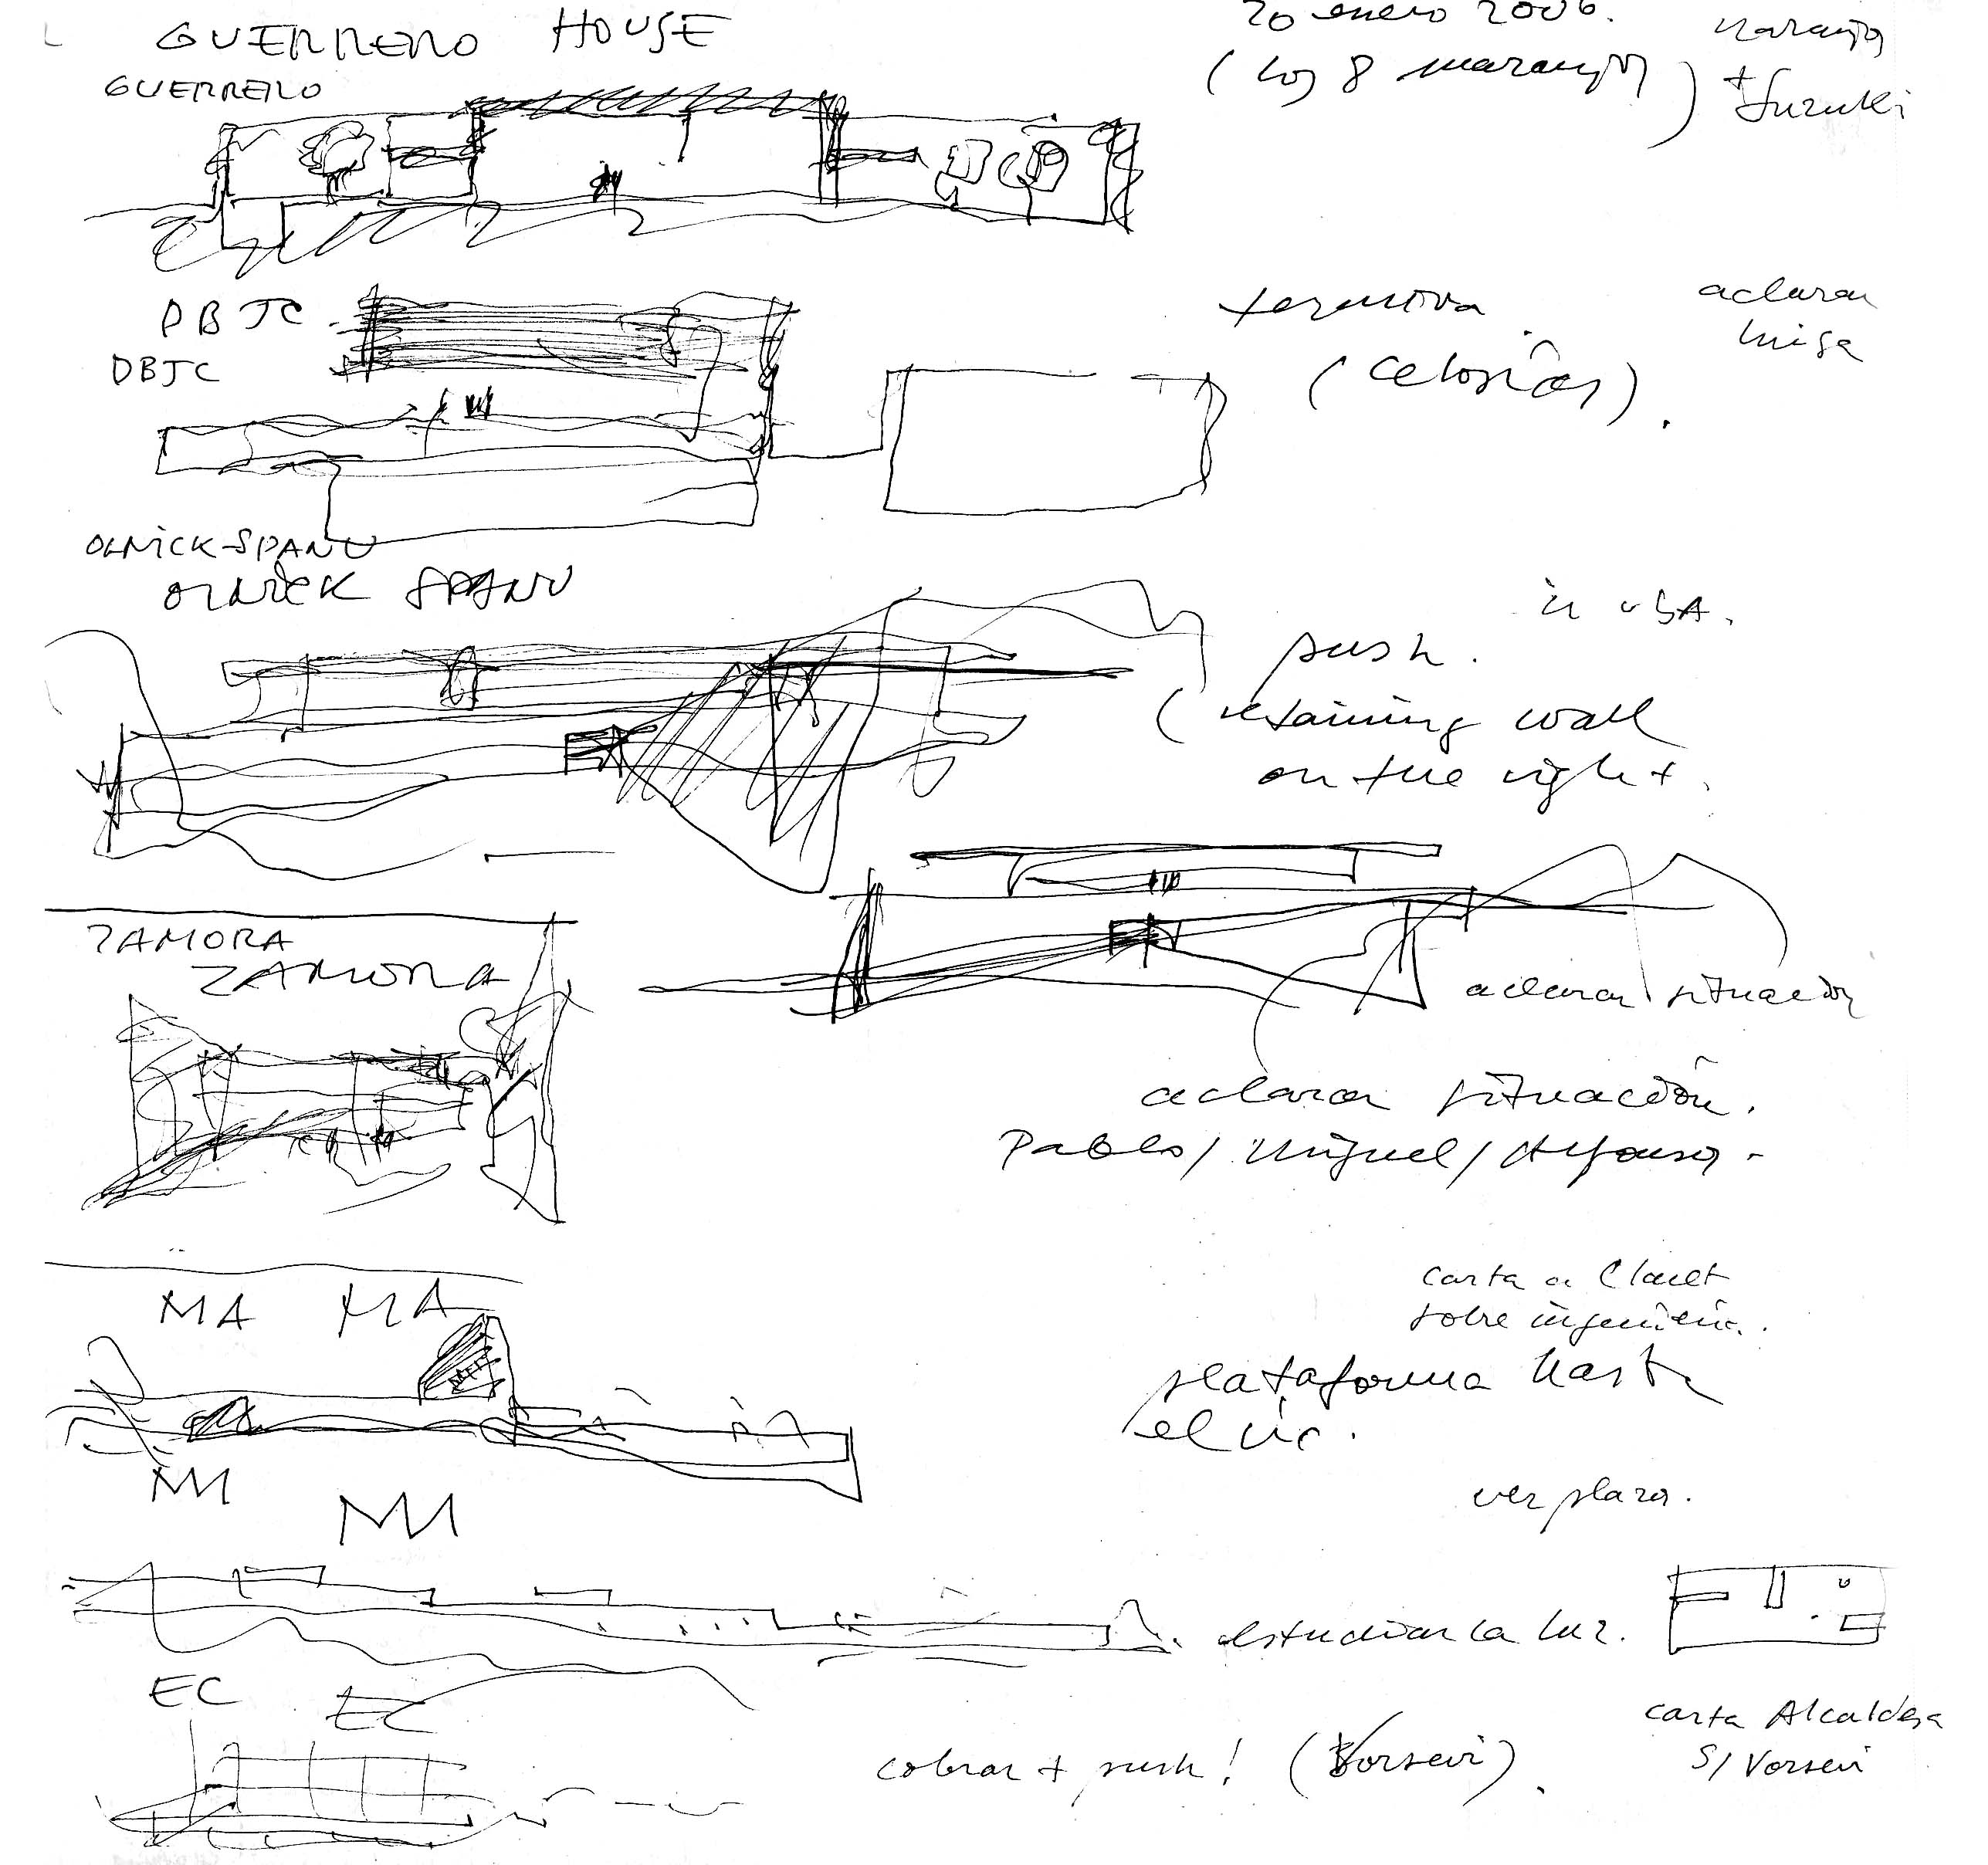 GUERRERO HOUSE
GUERRERO
20 enero 2006.
(los 8 naranjos)
naranjos
+
Suzuki
DBJC
DBJC
(celosías).
aclarar
OLNICK-SPANU
OLNICK SPANU
in USA.
push.
(retaining wall
on the right.
aclarar situación
ZAMORA
ZAMORA
aclarar situación.
Pablo/Miguel/Alfonso.
MA MA
carta a Claret
sobre ingeniería.
plataforma hasta
el río.
MI
MI
ver plazos.
estudiar la luz.
EC
EC
cobrar + push! (Vorsevi).
carta Alcaldesa
S/ Vorsevi